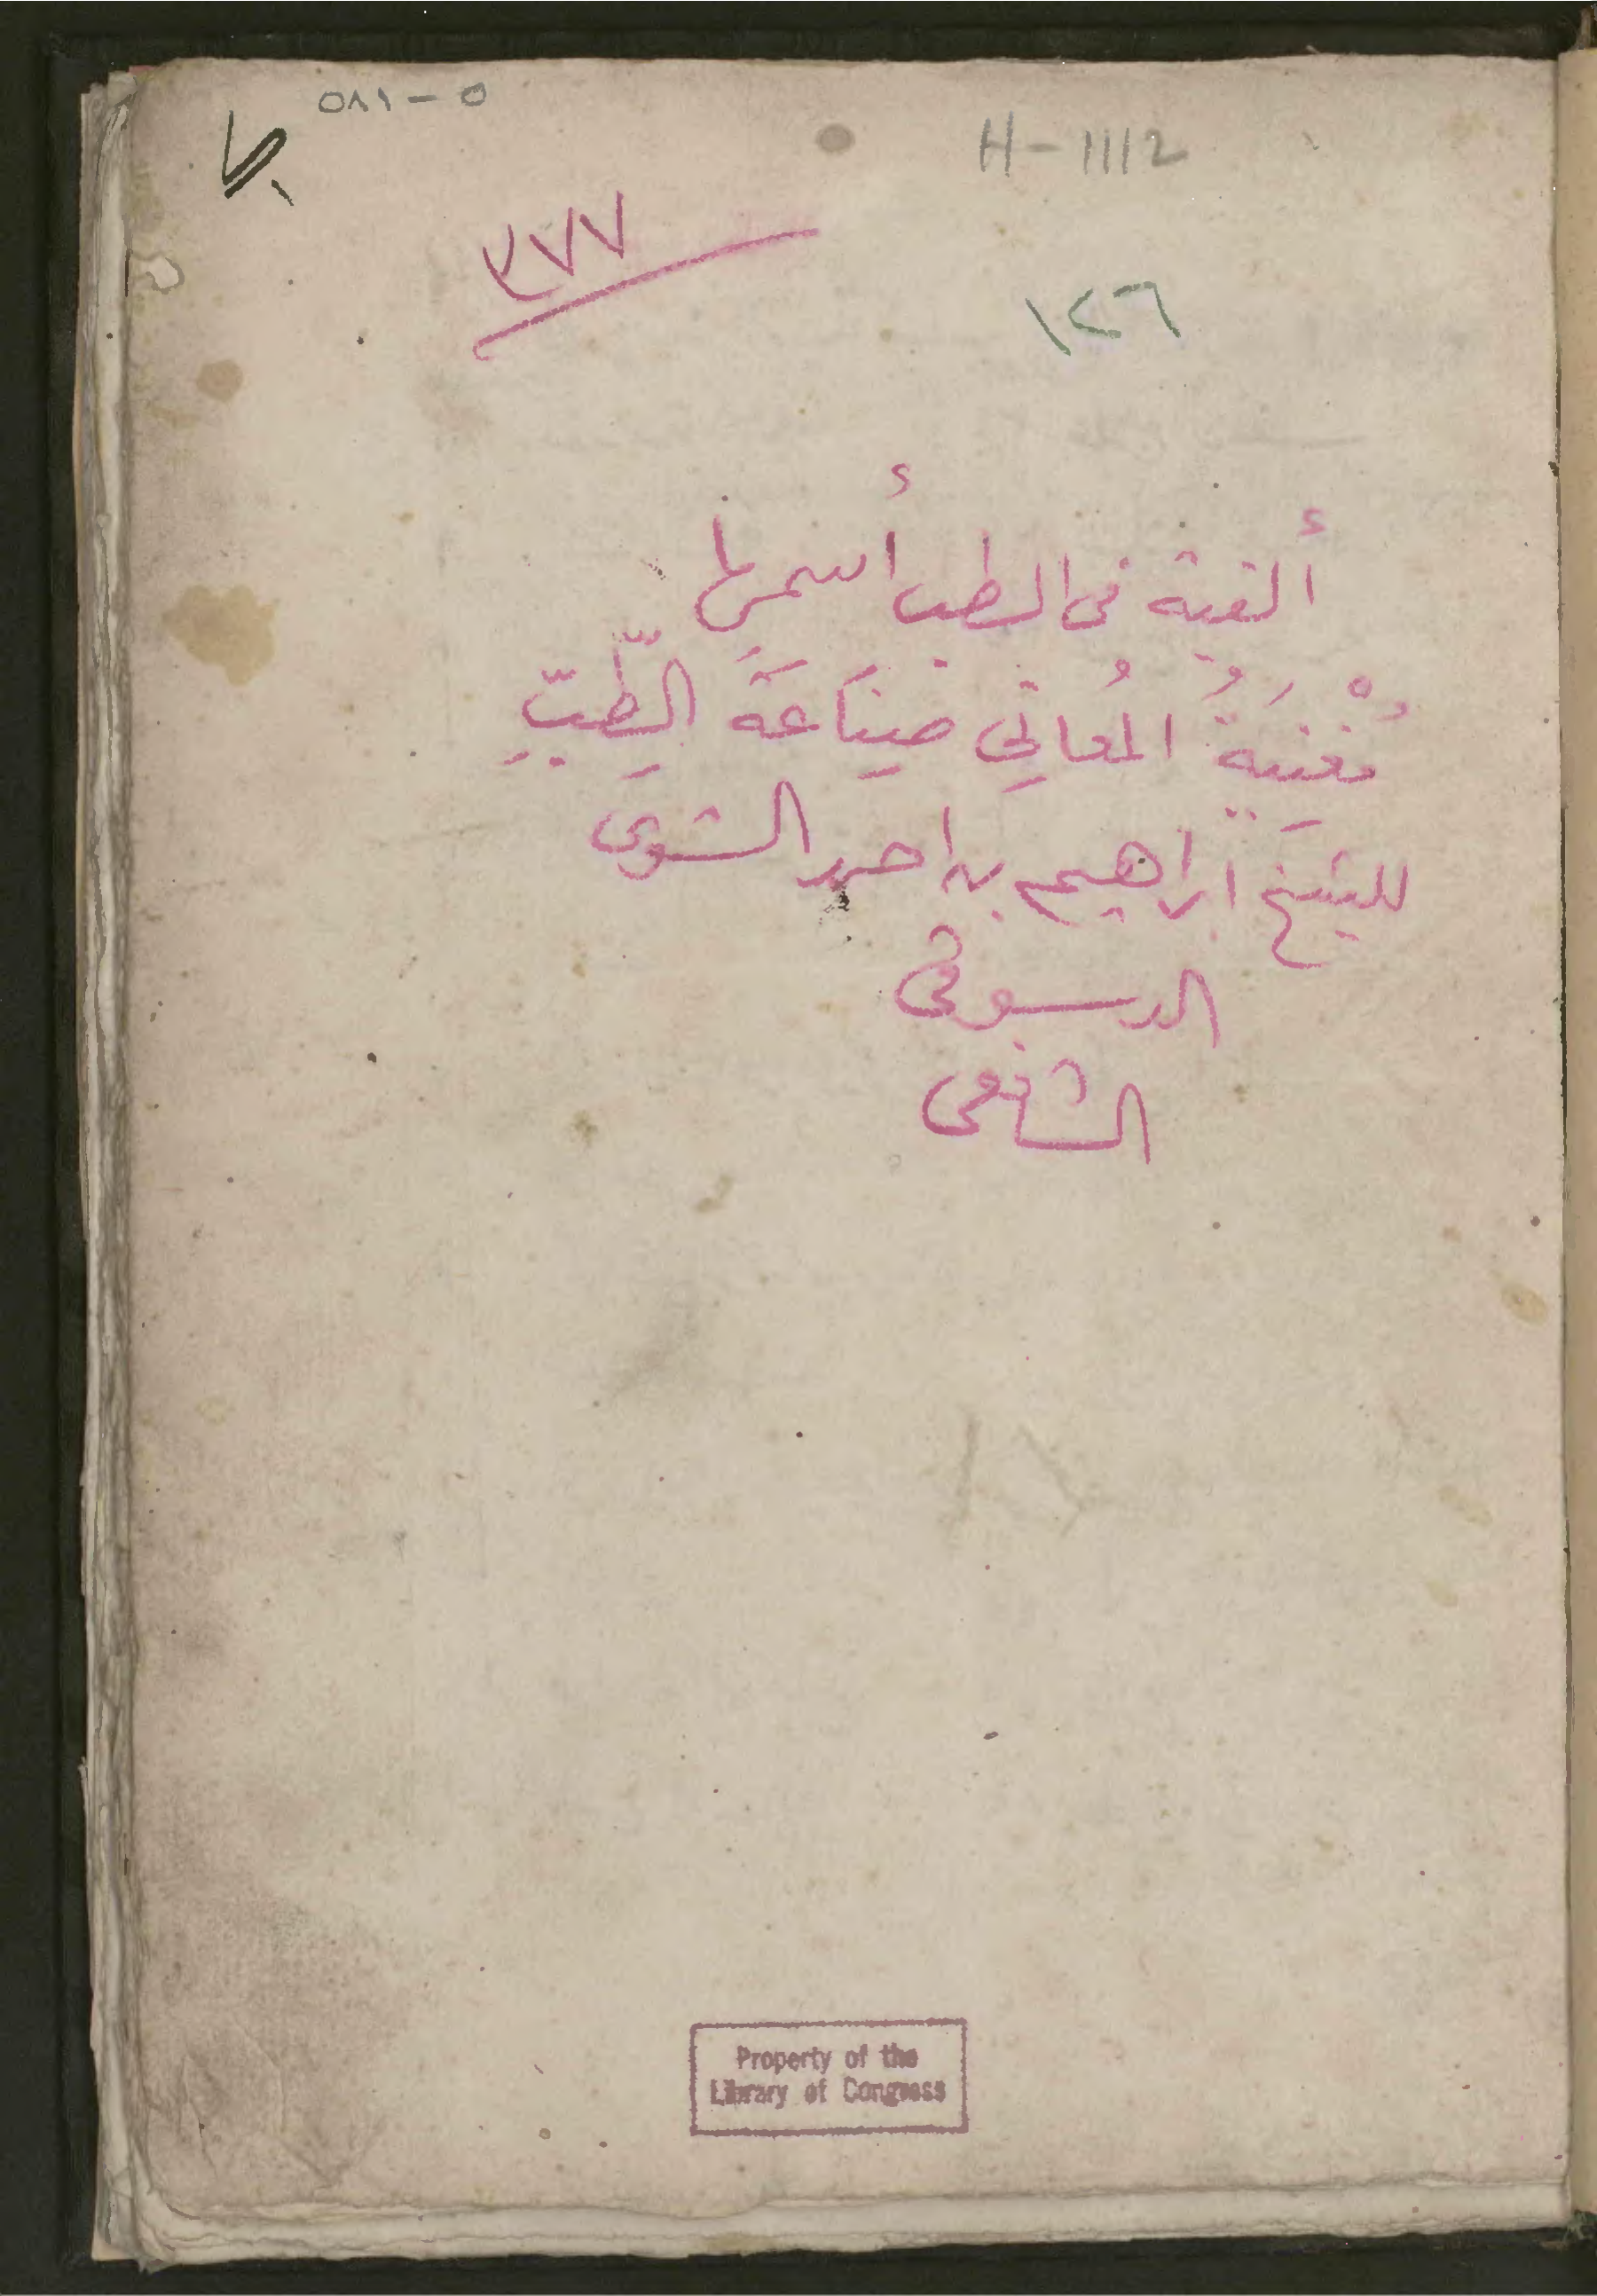 ٥٨١ - ٥
H-1112
٣٧٧
١٢٦
ألفية فى الطب أسمها
مُغْنِيَةُ المُعانِي صِنَاعَةَ الطِّبِّ
للشيخ ابراهيم بن احمد الشتوى
الدسوقى
الشافعى
Property of the
Library of Congress